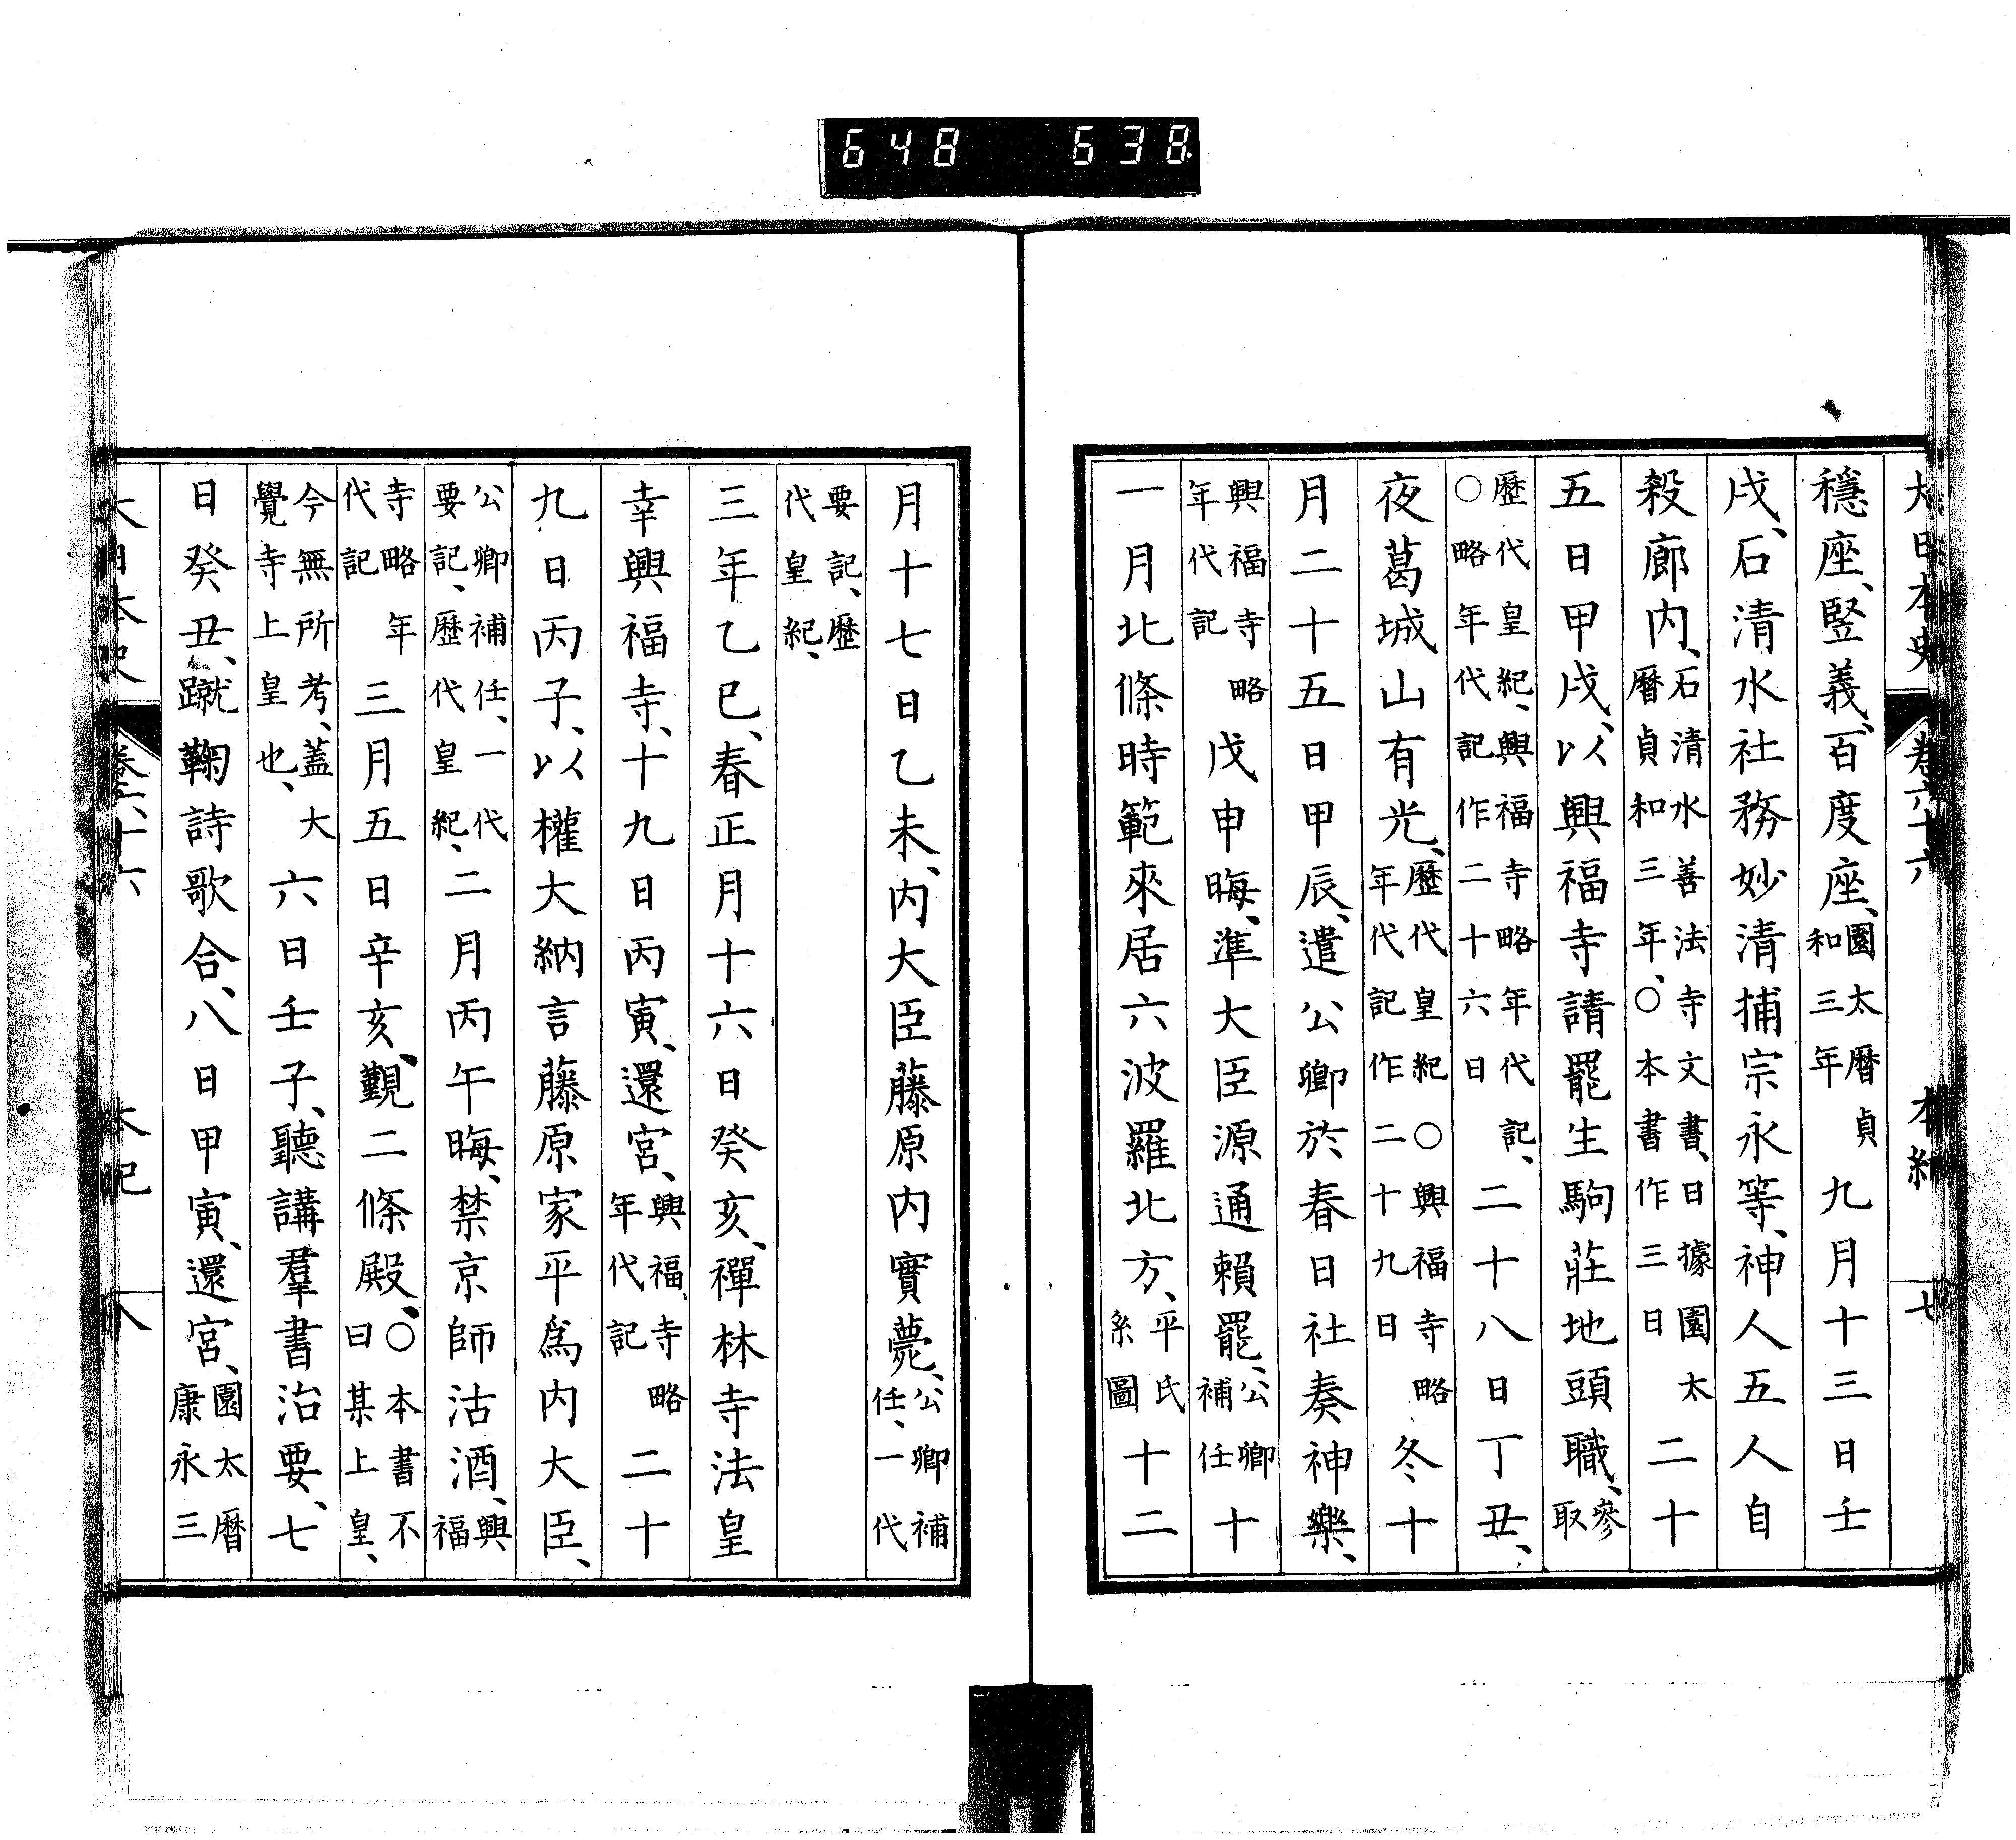 648 638
大日本史 卷六十六 本紀 七
穩座、竪義、百度座、園太曆貞和三年九月十三日壬
戌、石清水社務妙清捕宗永等、神人五人自
殺廊内、石清水善法寺文書、日據園太曆貞和三年、○本書作三日二十
五日甲戌、以興福寺請罷生駒莊地頭職、參取
歷代皇紀、興福寺略年代記、○略年代記作二十六日二十八日丁丑、
夜葛城山有光、歷代皇紀○興福寺略年代記作二十九日冬十
月二十五日甲辰、遣公卿於春日社奏神樂、
興福寺略年代記戊申晦、準大臣源通賴罷、公卿補任十
一月北條時範來居六波羅北方、平氏系圖十二
月十七日乙未、内大臣藤原内實薨、公卿補任、一代
要記、歷代皇紀、
三年乙巳、春正月十六日癸亥、禪林寺法皇
幸興福寺、十九日丙寅、還宮、興福寺略年代記二十
九日丙子、以權大納言藤原家平爲内大臣、
公卿補任、一代要記、歷代皇紀、二月丙午晦、禁京師沽酒、興福
寺略年代記三月五日辛亥、覲二條殿、○本書不曰某上皇、
今無所考、蓋大覺寺上皇也、六日壬子、聽講羣書治要、七
日癸丑、蹴鞠詩歌合、八日甲寅、還宮、園太曆康永三
大日本史 卷六十六 本紀 八